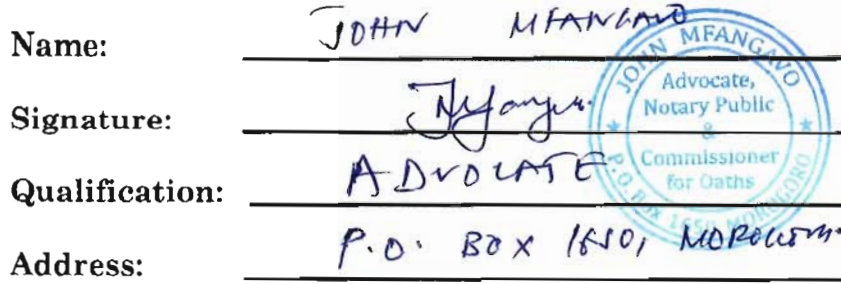 Name: JOHN MFANGAVO
Signature:
Qualification: ADVOCATE
Address: P.O. BOX 1650, MOROGORO
JOHN MFANGAVO
Advocate,
Notary Public
&
Commissioner
for Oaths
P.O. BOX 1650 MOROGORO